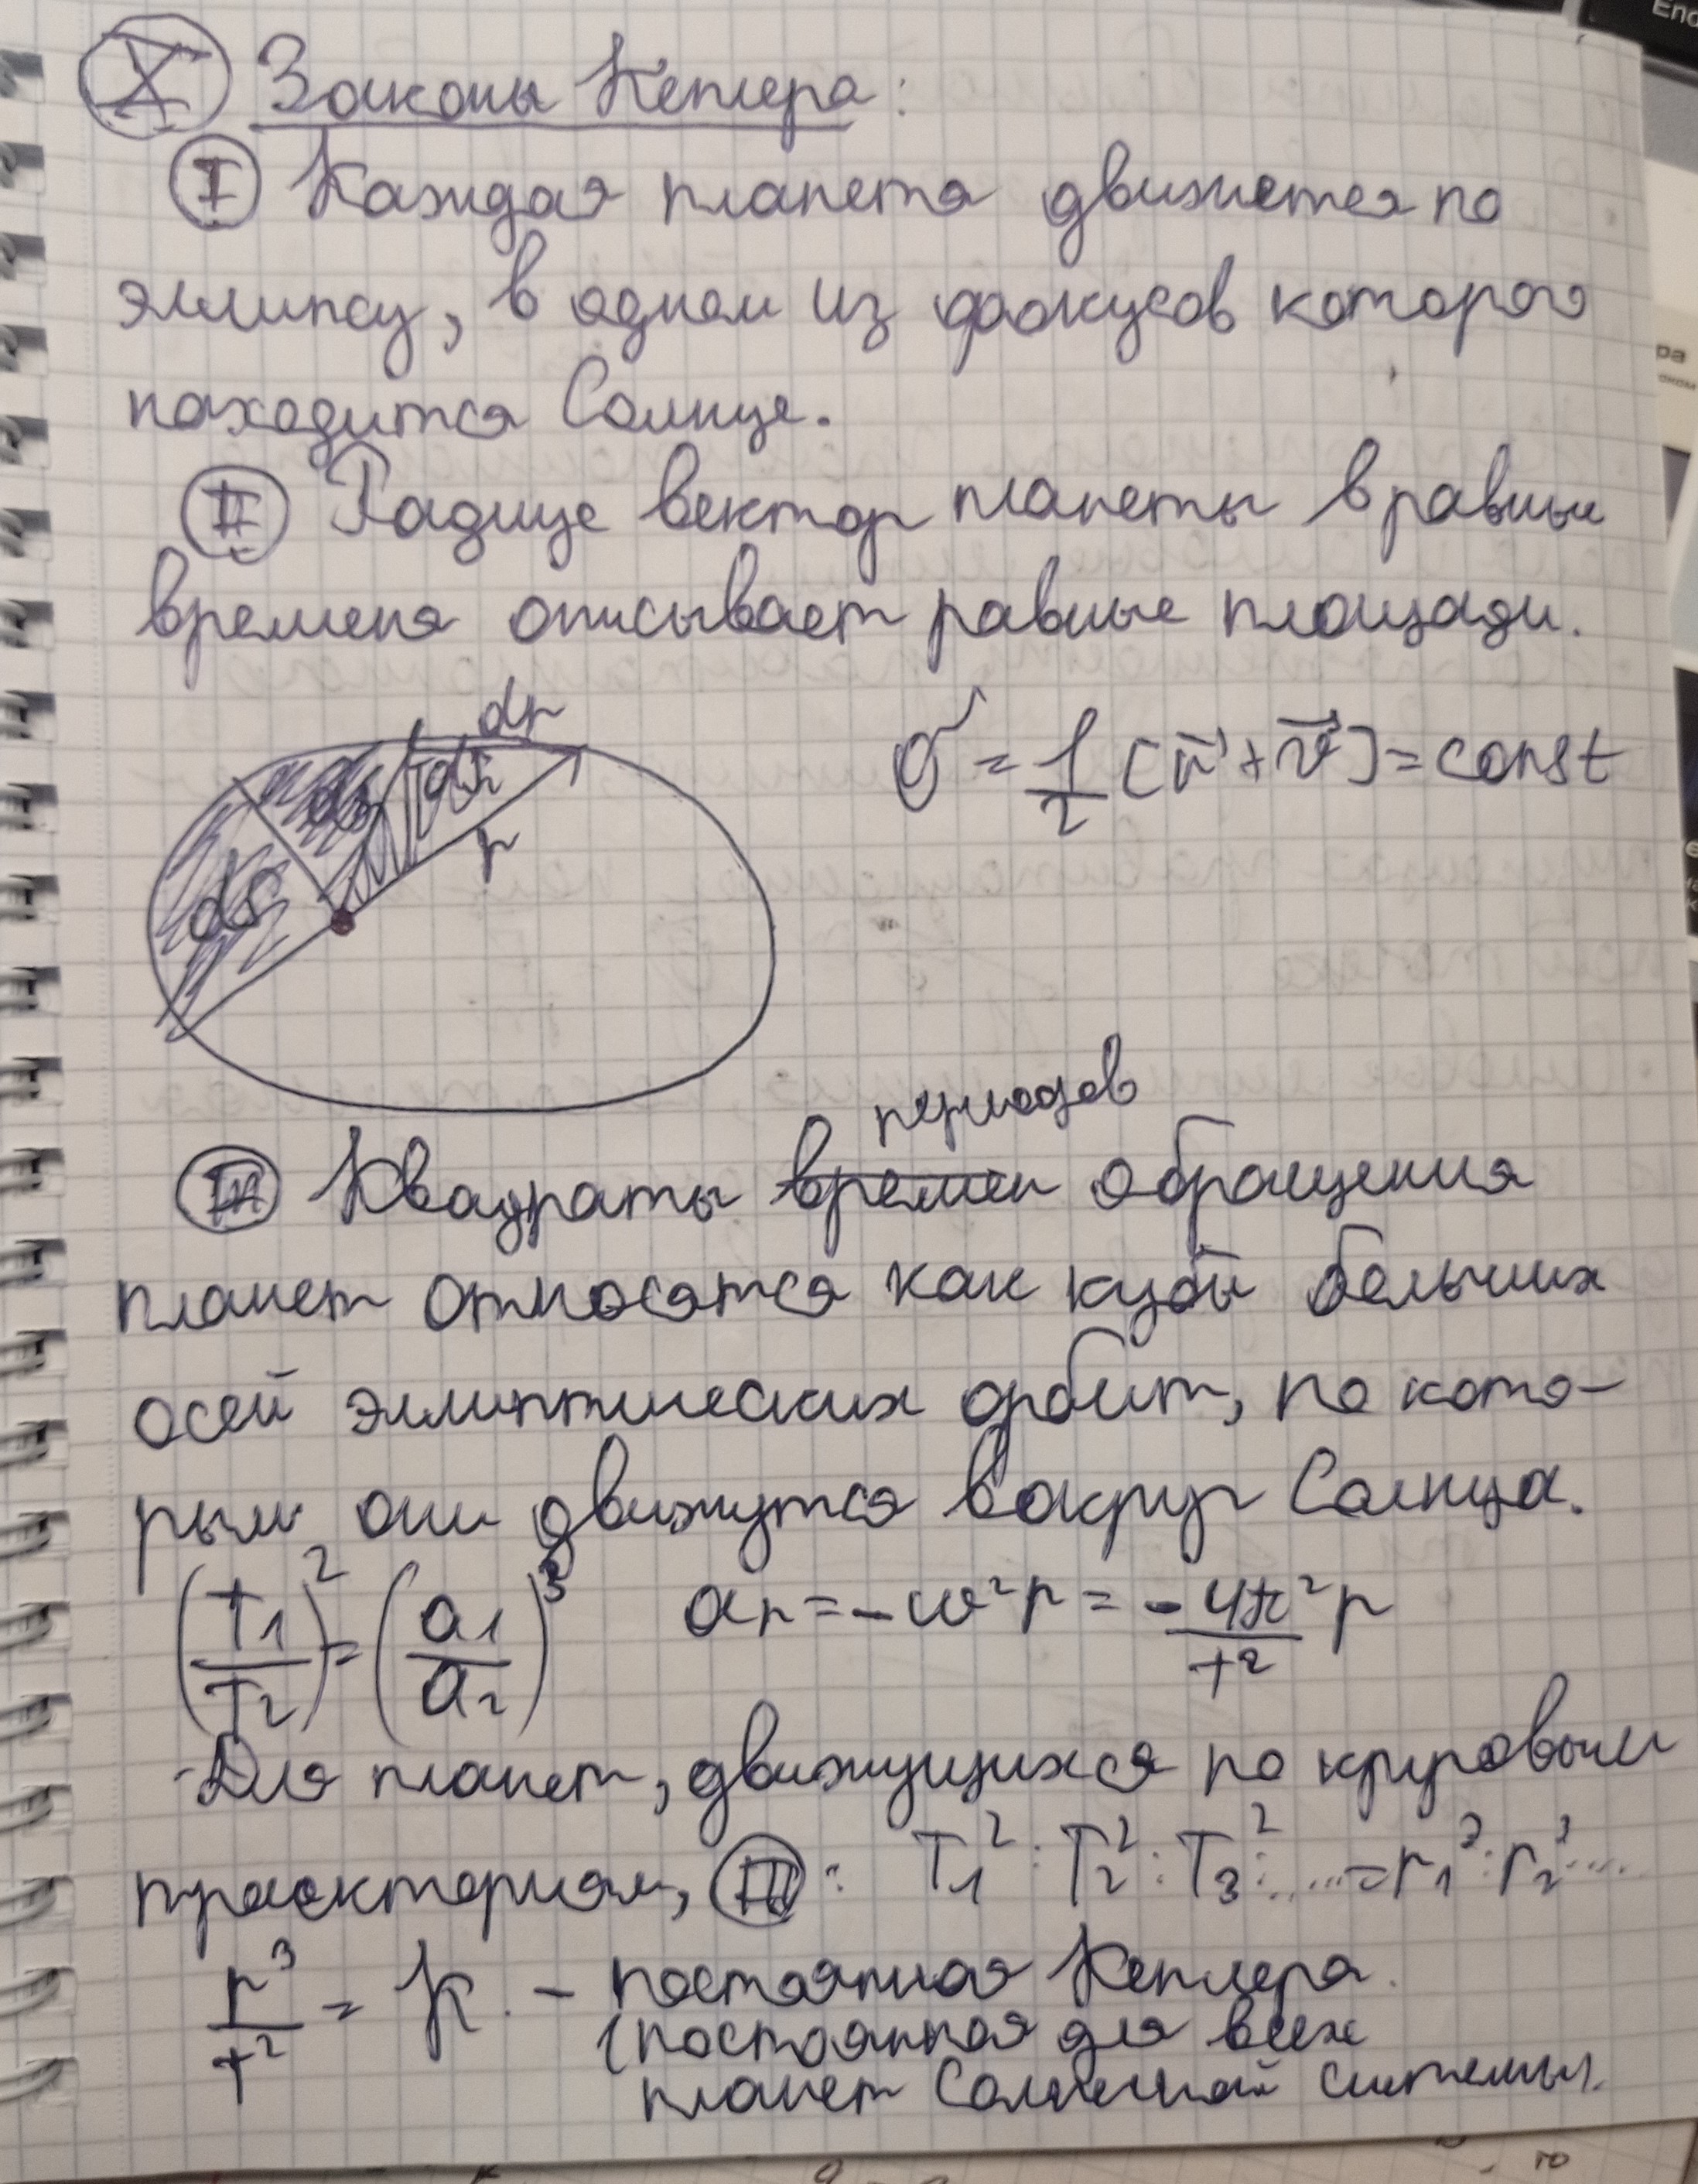 Ⓧ Законы Кеплера:
Ⓘ Каждая планета движется по
эллипсу, в одном из фокусов которого
находится Солнце.
Ⓘ︎Ⓘ Радиус вектор планеты в равные
времена описывает равные площади.
dr
σ = 1/2 [r⃗ × v⃗] = const
dS dS
r
dS
периодов
III Квадраты времен обращения
планет относятся как кубы больших
осей эллиптических орбит, по кото-
рым они движутся вокруг Солнца.
(T₁/T₂)² = (a₁/a₂)³ aₙ = -ω²r = -4π²/T² r
Для планет, движущихся по круговым
траекториям, III: T₁² : T₂² : T₃² : .... = r₁³ : r₂³ ....
r³/T² = K. - постоянная Кеплера.
(постоянная для всех
планет Солнечной системы).